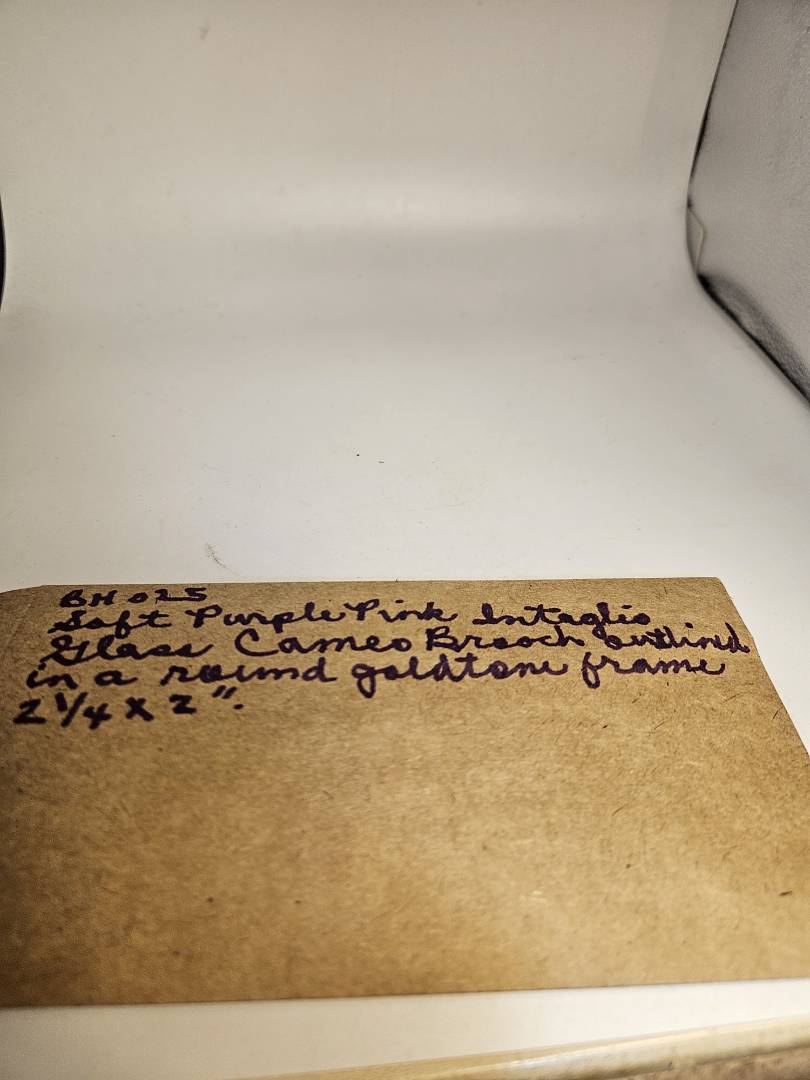 BH 025
Soft Purple Pink Intaglio
Glass Cameo Brooch outlined
in a round goldtone frame
2 1/4 X 2".